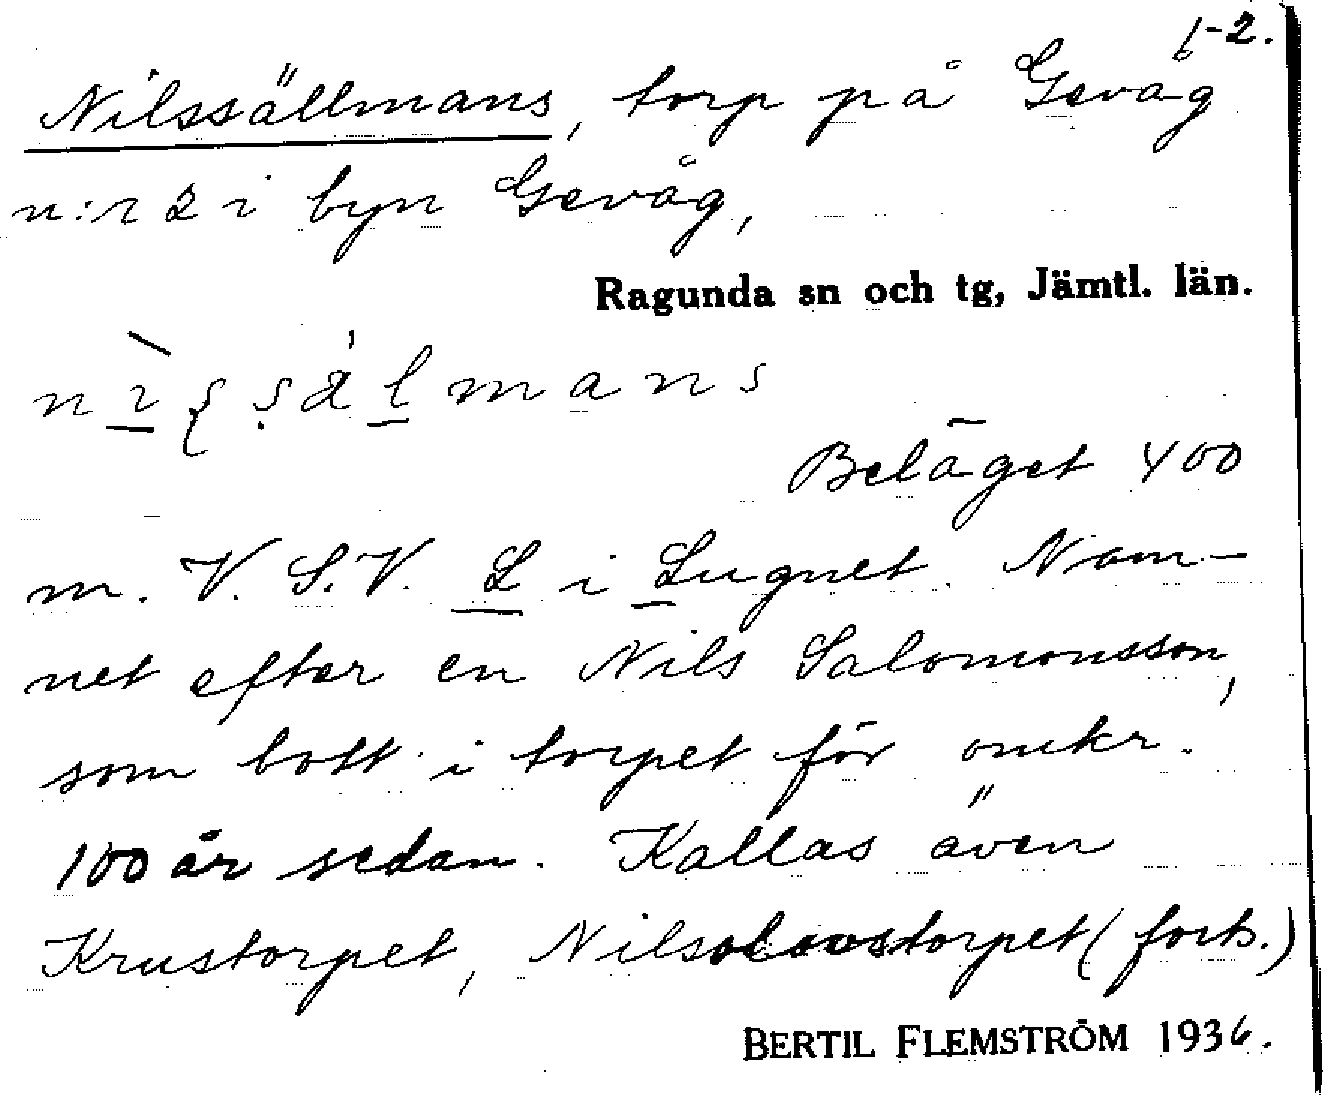 6-2.
Nilssällmans, torp på Gevåg
n:r 2 i byn Gevåg,
Ragunda sn och tg, Jämtl. län.
Beläget 400
m. V. S.V. L i Lugnet. Nam-
net efter en Nils Salomonsson,
som bott i torpet för omkr.
100 år sedan. Kallas även
Krustorpet, Nilsolovstorpet (forts.)
BERTIL FLEMSTRÖM 1936.